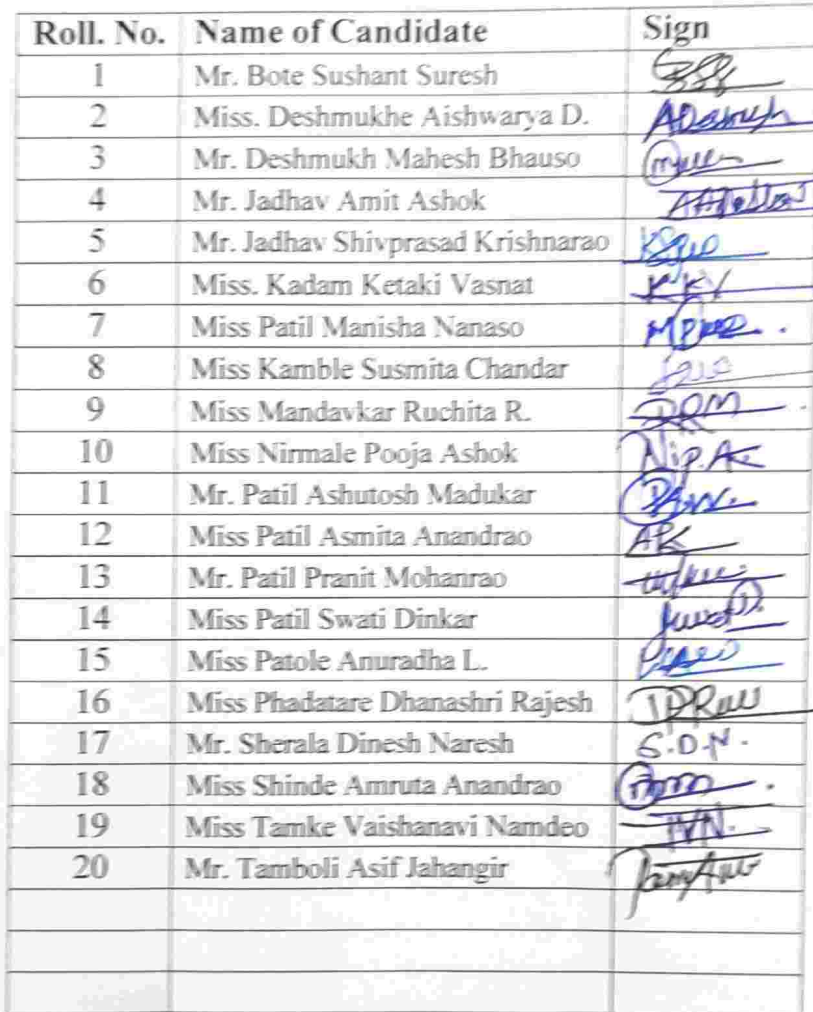 Roll. No. Name of Candidate Sign
1 Mr. Bote Sushant Suresh
2 Miss. Deshmukhe Aishwarya D.
3 Mr. Deshmukh Mahesh Bhauso
4 Mr. Jadhav Amit Ashok
5 Mr. Jadhav Shivprasad Krishnarao
6 Miss. Kadam Ketaki Vasnat KKV
7 Miss Patil Manisha Nanaso
8 Miss Kamble Susmita Chandar
9 Miss Mandavkar Ruchita R.
10 Miss Nirmale Pooja Ashok Nip.A.
11 Mr. Patil Ashutosh Madukar
12 Miss Patil Asmita Anandrao
13 Mr. Patil Pranit Mohanrao
14 Miss Patil Swati Dinkar
15 Miss Patole Anuradha L.
16 Miss Phadatare Dhanashri Rajesh
17 Mr. Sherala Dinesh Naresh S.D.N.
18 Miss Shinde Amruta Anandrao
19 Miss Tamke Vaishanavi Namdeo TVN.
20 Mr. Tamboli Asif Jahangir